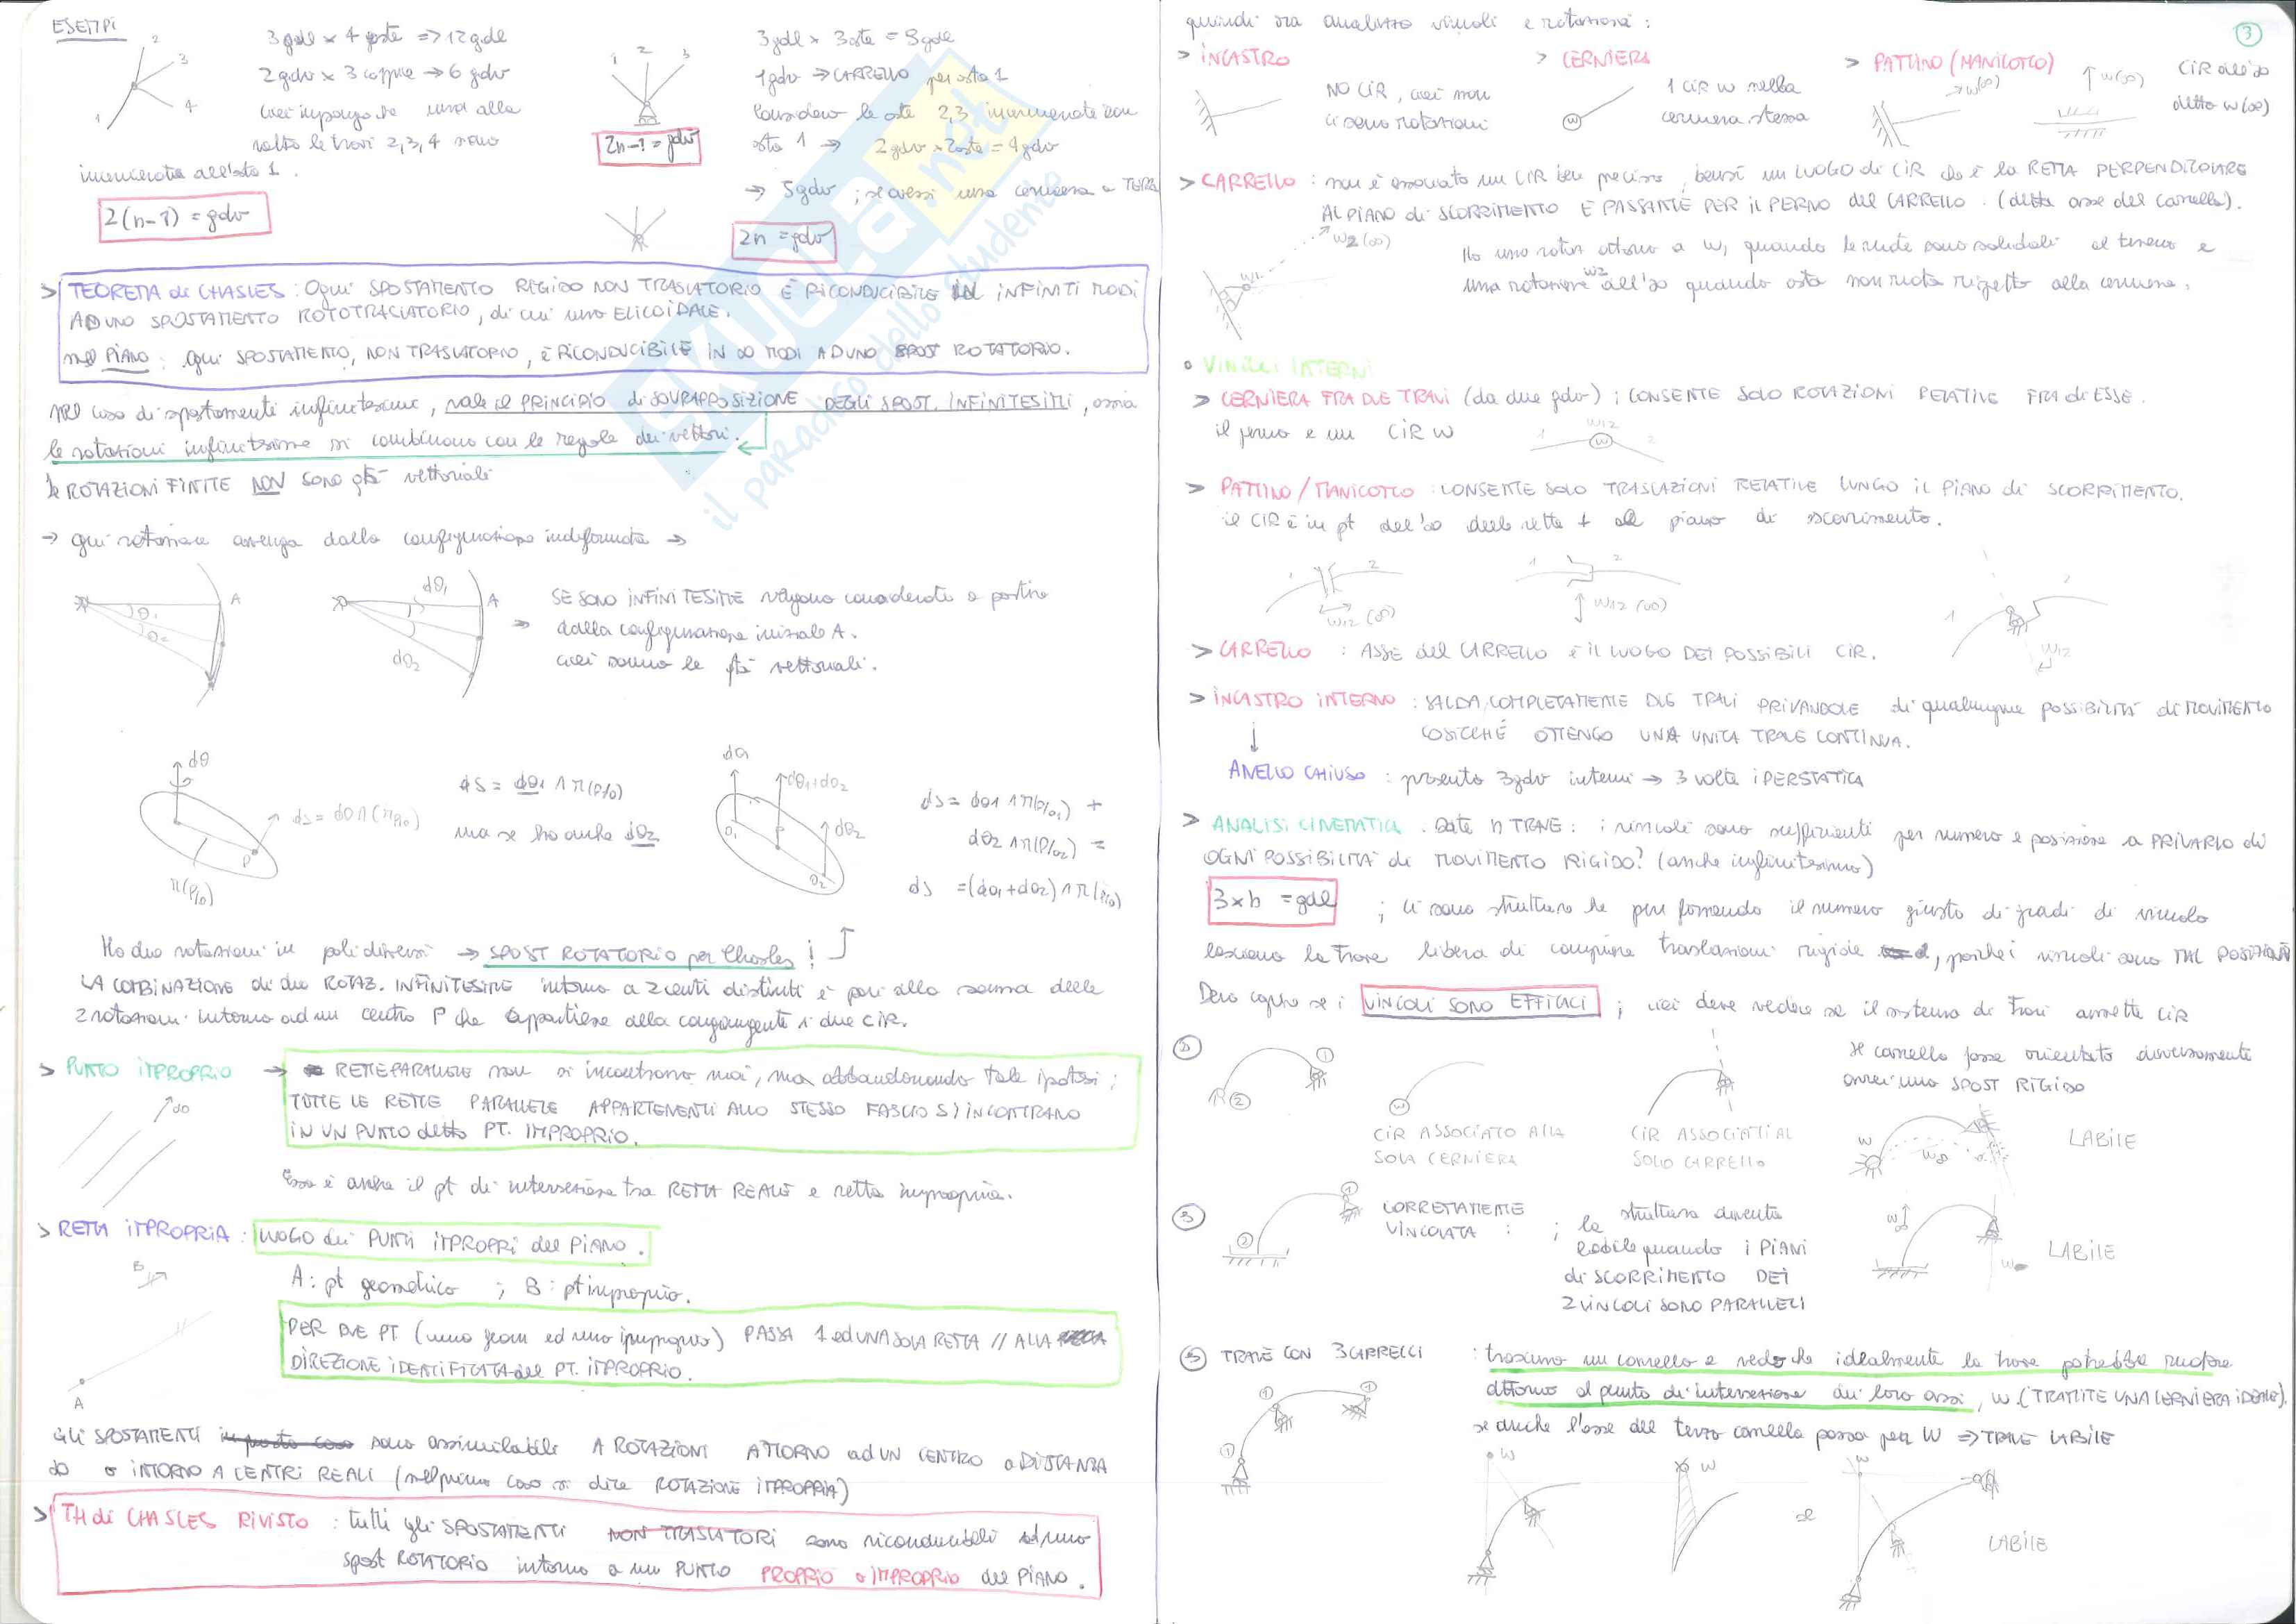 ESEMPI
3 gdl × 4 aste => 12 gdl
2 gdv × 3 coppie → 6 gdv
cioè impongo che una alla
volta le travi 2,3,4 siano
incernierate all'asta 1.
2(n-1) = gdv
1 2 3 4
3 gdl × 3 aste = 9 gdl
1 gdv → CARRELLO per asta 1
Considero le aste 2,3 incernierate con
asta 1 → 2 gdv × 2 aste = 4 gdv
→ 5 gdv ; se avessi una cerniera a TERRA
1 2 3
2n-1 = gdv
2n = gdv
> TEOREMA di CHASLES : Ogni SPOSTAMENTO RIGIDO NON TRASLATORIO È RICONDUCIBILE IN INFINITI MODI
AD UNO SPOSTAMENTO ROTOTRASLATORIO, di cui uno ELICOIDALE.
nel PIANO : ogni SPOSTAMENTO, NON TRASLATORIO, è RICONDUCIBILE IN ∞ MODI AD UNO SPOST ROTATORIO.
Nel caso di spostamenti infinitesimi, vale il PRINCIPIO di SOVRAPPOSIZIONE DEGLI SPOST. INFINITESIMI, ossia
le rotazioni infinitesime si combinano con le regole dei vettori.
le ROTAZIONI FINITE NON SONO gtà vettoriali
→ ogni rotazione avvenga dalla configurazione indeformata →
θ1 θ2 A
dθ1 dθ2 A
SE SONO INFINITESIME vengono considerate a partire
→ dalla configurazione iniziale A.
cioè sono le gtà vettoriali.
dθ
ds = dθ∧(r P/O)
P
r(P/O)
ds = dθ1 ∧ r(P/O)
ma se ho anche dθ2
dθ1 dθ1+dθ2 dθ2
O1 P O2
ds = dθ1 ∧ r(P/O1) +
dθ2 ∧ r(P/O2) =
ds = (dθ1+dθ2) ∧ r(P/O)
Ho due rotazioni in poli diversi → SPOST ROTATORIO per Chasles !
LA COMBINAZIONE di due ROTAZ. INFINITESIME intorno a 2 centri distinti è pari alla somma delle
2 rotazioni intorno ad un centro P che appartiene alla congiungente i due CIR.
> PUNTO IMPROPRIO → RETTE PARALLELE non si incontrano mai, ma abbandonando tale ipotesi ;
TUTTE LE RETTE PARALLELE APPARTENENTI ALLO STESSO FASCIO SI INCONTRANO
IN UN PUNTO detto PT. IMPROPRIO.
∞
Esso è anche il pt di intersezione tra RETTA REALE e retta impropria.
> RETTA IMPROPRIA : LUOGO dei PUNTI IMPROPRI del PIANO.
B
A : pt geometrico ; B : pt improprio.
PER DUE PT (uno geom ed uno improprio) PASSA 1 ed UNA SOLA RETTA // ALLA
DIREZIONE IDENTIFICATA dal PT. IMPROPRIO.
A
Gli SPOSTAMENTI sono assimilabili A ROTAZIONI ATTORNO ad UN CENTRO a DISTANZA
∞ o INTORNO A CENTRI REALI (nel primo caso si dice ROTAZIONE IMPROPRIA)
> TH di CHASLES RIVISTO : tutti gli SPOSTAMENTI NON TRASLATORI sono riconducibili ad uno
spost ROTATORIO intorno a un PUNTO PROPRIO o IMPROPRIO del PIANO.
SKUOLA.net
il paradiso dello studente
3
quindi ora analizzo vincoli e rotazioni :
> INCASTRO
NO CIR, cioè non
ci sono rotazioni
> CERNIERA
W
1 CIR W nella
cerniera stessa
> PATTINO (MANICOTTO)
W(∞) W(∞)
CIR all'∞
detto W(∞)
> CARRELLO : non è associato un CIR ben preciso, bensì un LUOGO di CIR che è la RETTA PERPENDICOLARE
AL PIANO di SCORRIMENTO E PASSANTE PER IL PERNO DEL CARRELLO. (detta asse del carrello).
W2 (∞)
W1
Ho una rotaz attorno a W1 quando le ruote sono solidali al terreno e
una rotazione W2 all'∞ quando asta non ruota rispetto alla cerniera.
• VINCOLI INTERNI
> CERNIERA FRA DUE TRAVI (da due gdv) ; CONSENTE SOLO ROTAZIONI RELATIVE FRA di ESSE.
il perno è un CIR W
1 W12 W 2
> PATTINO / MANICOTTO : CONSENTE SOLO TRASLAZIONI RELATIVE LUNGO IL PIANO di SCORRIMENTO.
il CIR è in pt dell'∞ della retta ⊥ al piano di scorrimento.
1 2 W12 (∞)
1 2 W12 (∞)
1 2 W12
> CARRELLO : ASSE del CARRELLO è IL LUOGO DEI POSSIBILI CIR.
> INCASTRO INTERNO : SALDA COMPLETAMENTE DUE TRAVI PRIVANDOLE di qualunque POSSIBILITÀ di MOVIMENTO
COSICCHÉ OTTENGO UNA UNICA TRAVE CONTINUA.
ANELLO CHIUSO : presenta 3 gdv interni → 3 volte IPERSTATICA
> ANALISI CINEMATICA. Date n TRAVI : i vincoli sono sufficienti per numero e posizione a PRIVARLO di
OGNI POSSIBILITÀ di MOVIMENTO RIGIDO? (anche infinitesimo)
3×n = gdl ; ci sono strutture che pur fornendo il numero giusto di gradi di vincolo
lasciano la trave libera di compiere traslazioni rigide, poiché i vincoli sono MAL POSIZIONATI
Devo capire se i VINCOLI SONO EFFICACI ; cioè devo vedere se il sistema di travi ammette CIR
1 2
W
CIR ASSOCIATO ALLA
SOLA CERNIERA
CIR ASSOCIATI AL
SOLO CARRELLO
Se carrello fosse orientato diversamente
avrei uno SPOST RIGIDO
W
LABILE
3 1 2
CORRETTAMENTE
VINCOLATA : ; la struttura diventa
labile quando i PIANI
di SCORRIMENTO DEI
2 VINCOLI SONO PARALLELI
W∞ W∞
LABILE
5 TRAVE CON 3 CARRELLI : trascuro un carrello e vedo che idealmente la trave potrebbe ruotare
attorno al punto di intersezione dei loro assi, W. (TRAMITE UNA CERNIERA IDEALE).
se anche l'asse del terzo carrello passa per W => TRAVE LABILE
1 1 1
W W W
se
LABILE